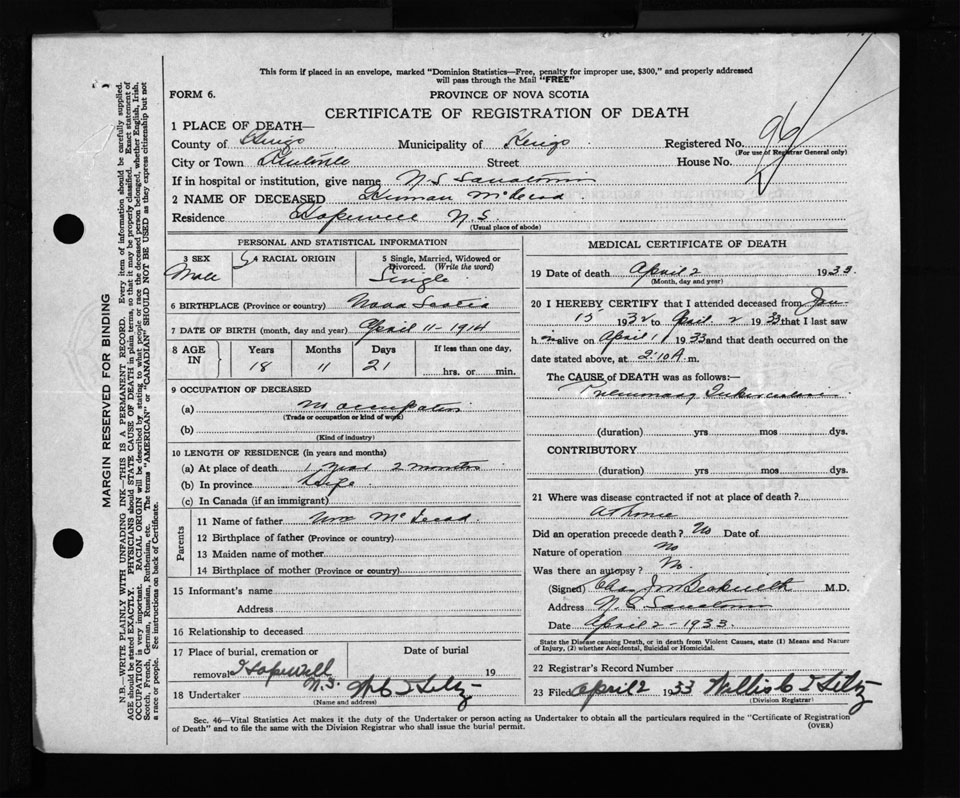 This form if placed in an envelope, marked "Dominion Statistics—Free, penalty for improper use, $300," and properly addressed
will pass through the Mail "FREE"
FORM 6.
PROVINCE OF NOVA SCOTIA
CERTIFICATE OF REGISTRATION OF DEATH
1 PLACE OF DEATH—
County of Kings Municipality of Kings Registered No. 96
(For use of Registrar General only)
City or Town Kentville Street House No.
If in hospital or institution, give name N S Sanatorium
2 NAME OF DECEASED McLeod
Residence Hopewell N.S.
(Usual place of abode)
PERSONAL AND STATISTICAL INFORMATION
3 SEX 4 RACIAL ORIGIN 5 Single, Married, Widowed or Divorced. (Write the word)
Male Single
6 BIRTHPLACE (Province or country) Nova Scotia
7 DATE OF BIRTH (month, day and year) April 11-1914
8 AGE IN Years Months Days If less than one day,
18 11 21 hrs. or min.
9 OCCUPATION OF DECEASED
(a) No occupation
(Trade or occupation or kind of work)
(b)
(Kind of industry)
10 LENGTH OF RESIDENCE (in years and months)
(a) At place of death 1 year 2 months
(b) In province Life
(c) In Canada (if an immigrant)
Parents
11 Name of father Wm McLeod
12 Birthplace of father (Province or country)
13 Maiden name of mother
14 Birthplace of mother (Province or country)
15 Informant's name
Address
16 Relationship to deceased
17 Place of burial, cremation or Date of burial
removal Hopewell N.S. 19
18 Undertaker
(Name and address)
MEDICAL CERTIFICATE OF DEATH
19 Date of death April 2 1933
(Month, day and year)
20 I HEREBY CERTIFY that I attended deceased from Jan
15 1932 to April 2 1933 that I last saw
h im alive on April 1 1933 and that death occurred on the
date stated above, at 2:10 A. m.
The CAUSE of DEATH was as follows:—
Pulmonary Tuberculosis
(duration) yrs mos dys.
CONTRIBUTORY
(duration) yrs mos dys.
21 Where was disease contracted if not at place of death?
At home
Did an operation precede death? No Date of
Nature of operation No
Was there an autopsy? No.
(Signed) Beckwith M.D.
Address N. S. Sanatorium
Date April 2-1933.
State the Disease causing Death, or in death from Violent Causes, state (1) Means and Nature
of Injury, (2) whether Accidental, Suicidal or Homicidal.
22 Registrar's Record Number
23 Filed April 2 1933 Willis C
(Division Registrar)
Sec. 46—Vital Statistics Act makes it the duty of the Undertaker or person acting as Undertaker to obtain all the particulars required in the "Certificate of Registration
of Death" and to file the same with the Division Registrar who shall issue the burial permit. (OVER)
MARGIN RESERVED FOR BINDING
N.B.—WRITE PLAINLY WITH UNFADING INK—THIS IS A PERMANENT RECORD. Every item of information should be carefully supplied.
AGE should be stated EXACTLY. PHYSICIANS should STATE CAUSE OF DEATH in plain terms, so that it may be properly classified. Exact statement of
OCCUPATION is very important. RACIAL ORIGIN will be described by stating to what people or race the deceased person belonged, whether English, Irish,
Scotch, French, German, Russian, Ruthenian, etc. The terms "AMERICAN" or "CANADIAN" SHOULD NOT BE USED as they express citizenship but not
a race or people. See instructions on back of Certificate.